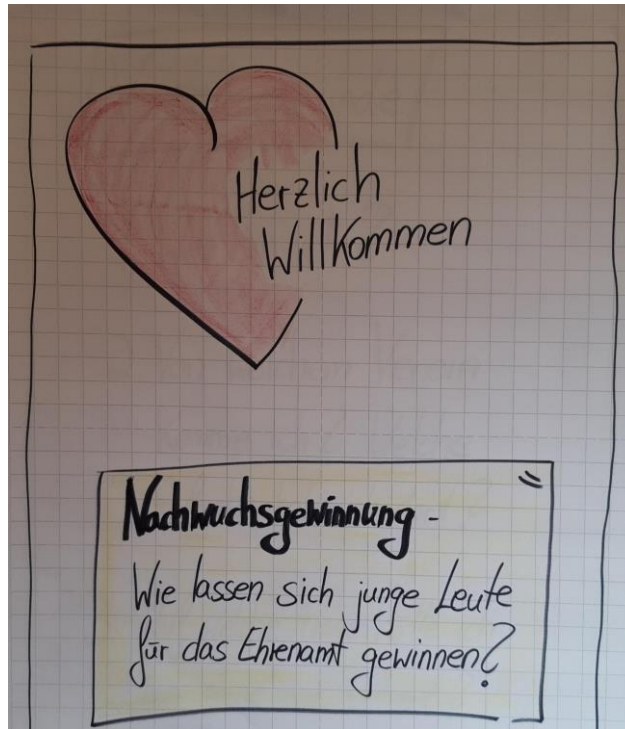 Herzlich
Willkommen
Nachwuchsgewinnung -
Wie lassen sich junge Leute
für das Ehrenamt gewinnen?